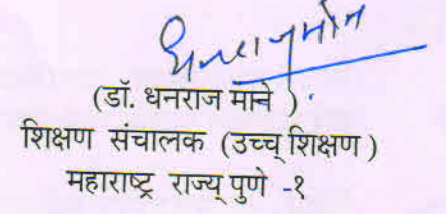 धनराज माने
(डॉ. धनराज माने ).
शिक्षण संचालक (उच्च शिक्षण )
महाराष्ट्र राज्य पुणे -१